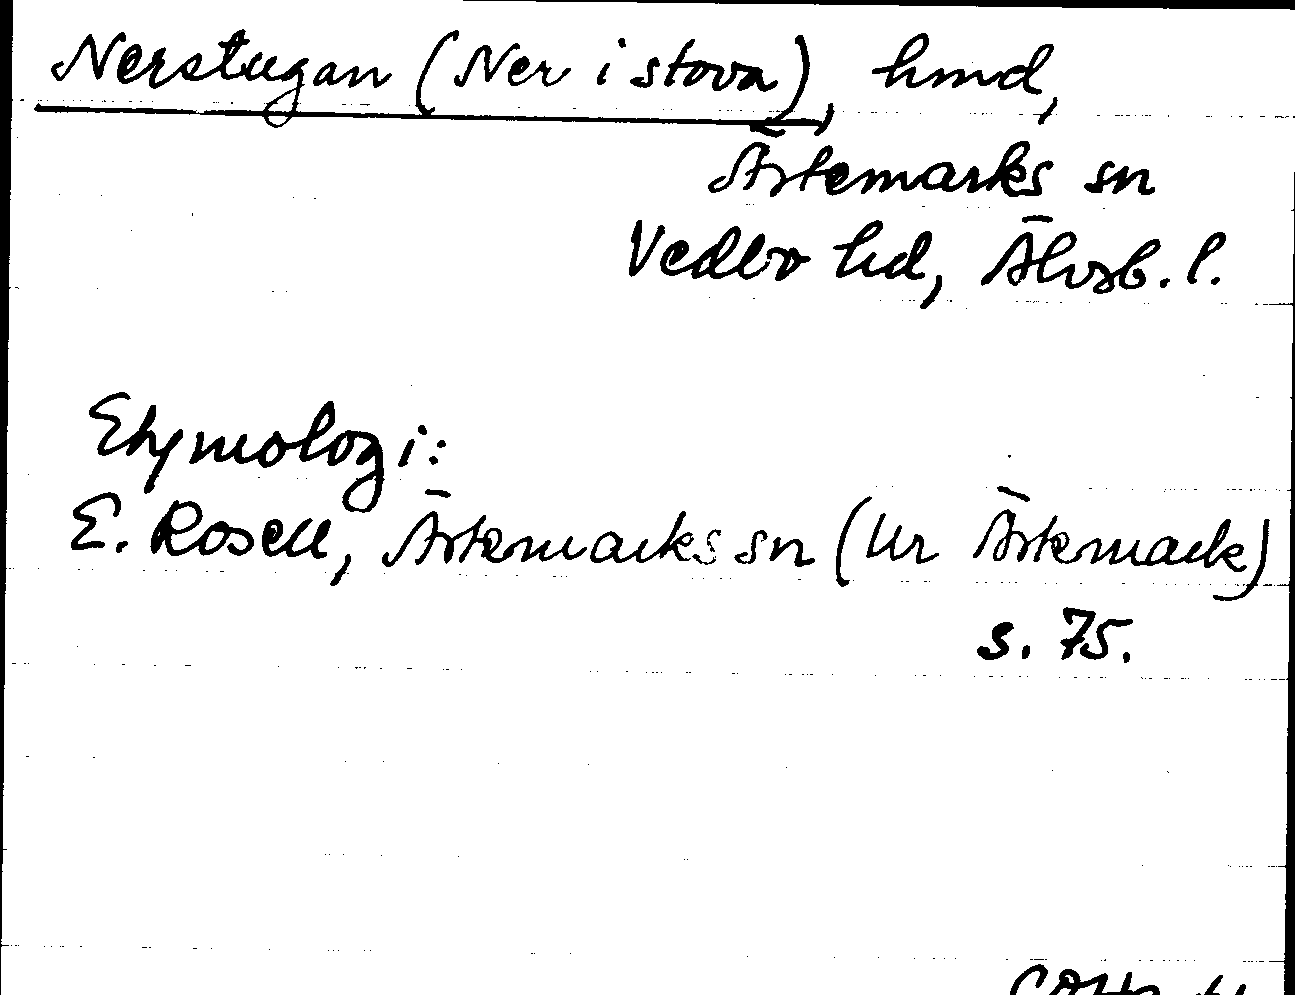 Nerstugan (Ner i stova), hmd,
Ärtemarks sn
Vedbo hd, Älvsb. l.
Etymologi:
E. Rosell, Ärtemarks sn (Ur Ärtemark)
s. 75.